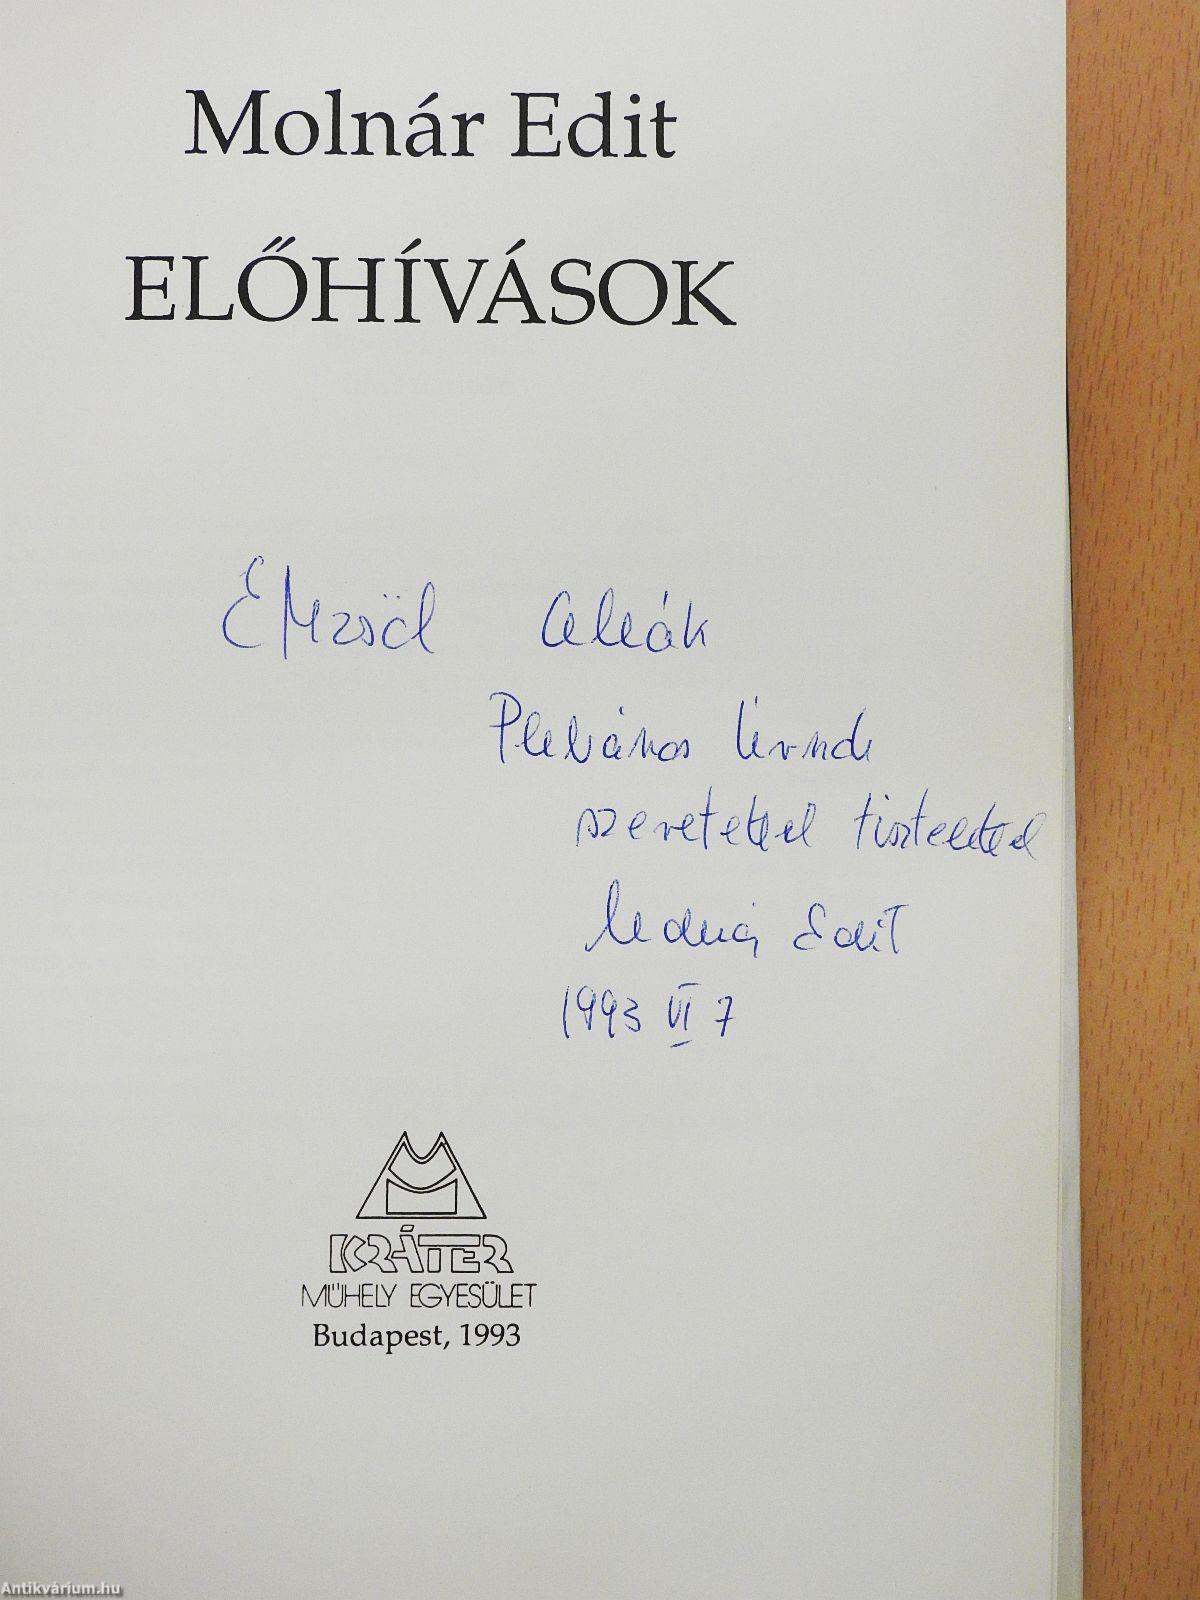 Molnár Edit
ELŐHÍVÁSOK
Plebános Úrnak
szeretettel tisztelettel
Molnár Edit
1993 VI 7
KRÁTER
MŰHELY EGYESÜLET
Budapest, 1993
Antikvárium.hu